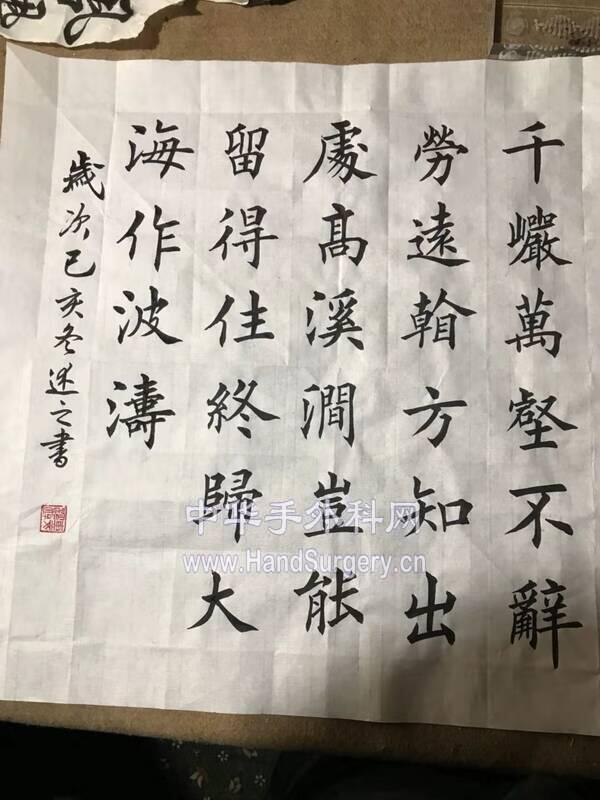 千巗萬壑不辭
勞遠方知出
處髙溪澗豈能
留得住終歸大
海作波濤
歲次己亥冬述之書
中华手外科网
www.HandSurgery.cn